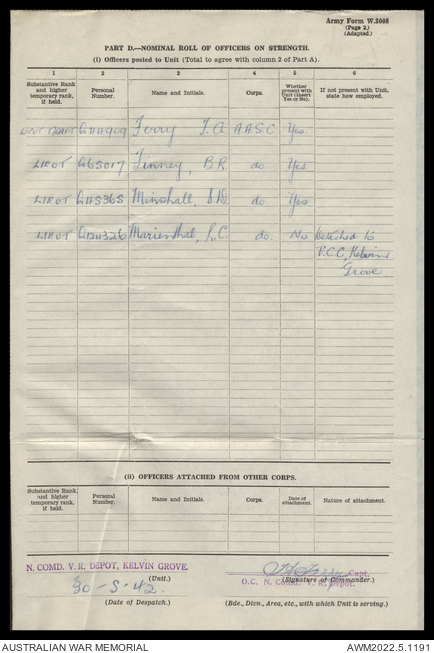 Army Form W.3008
(Page 2)
(Adapted.)
PART D.—NOMINAL ROLL OF OFFICERS ON STRENGTH.
(i) Officers posted to Unit (Total to agree with column 2 of Part A).
1 2 3 4 5 6
Substantive Rank and higher temporary rank, if held. Personal Number. Name and Initials. Corps. Whether present with Unit (Insert Yes or No). If not present with Unit, state how employed.
LIEUT Q114909 Terry T.A. A.A.S.C Yes
LIEUT Q65017 Finney, B.R. do Yes
LIEUT Q115365 Minshall, S.D. do Yes
LIEUT Marienthal, L.C. do. No Detached to
V.C.C, Kelvin
Grove
(ii) OFFICERS ATTACHED FROM OTHER CORPS.
Substantive Rank, and higher temporary rank, if held. Personal Number. Name and Initials. Corps. Date of attachment. Nature of attachment.
N. COMD. V. R. DEPOT, KELVIN GROVE.
(Unit.)
Capt.
(Signature of Commander.)
O.C. N. COMD. V. R. DEPOT.
30-5-42
(Date of Despatch.)
(Bde., Divn., Area, etc., with which Unit is serving.)
AUSTRALIAN WAR MEMORIAL
AWM2022.5.1191